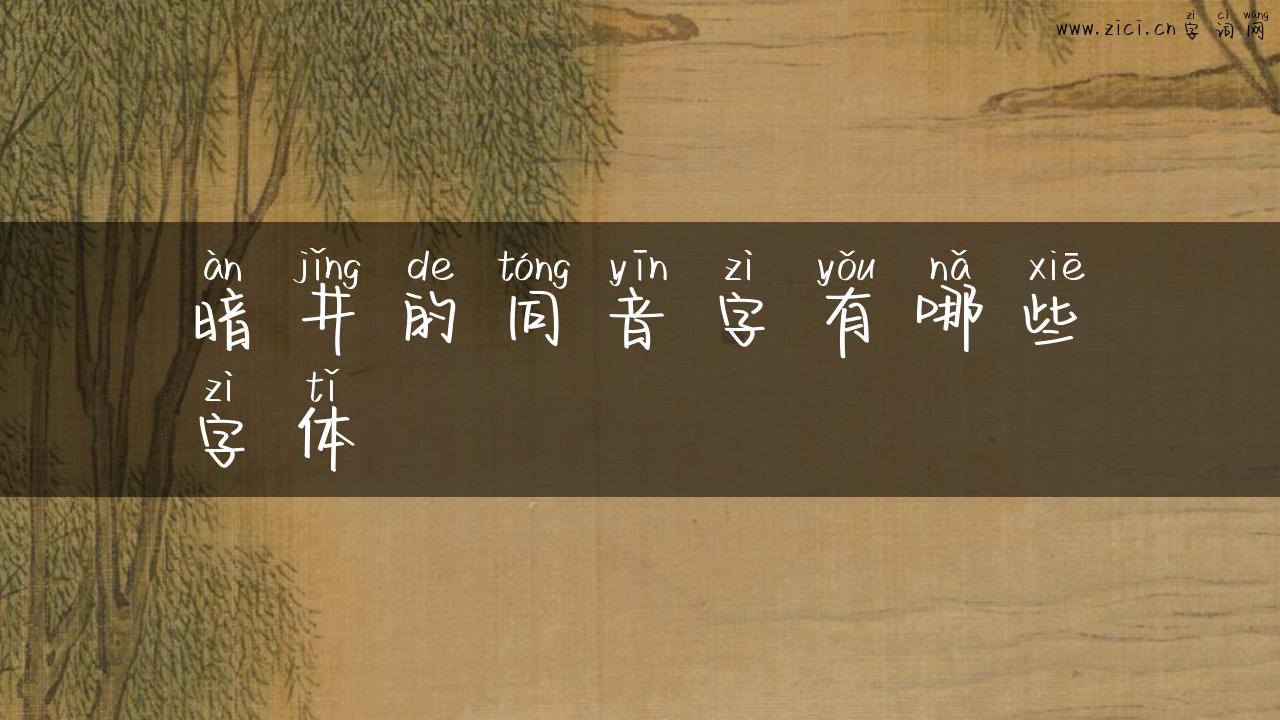 zì cí wǎng
www.zici.cn 字词网
àn jǐng de tóng yīn zì yǒu nǎ xiē
暗井的同音字有哪些
zì tǐ
字体